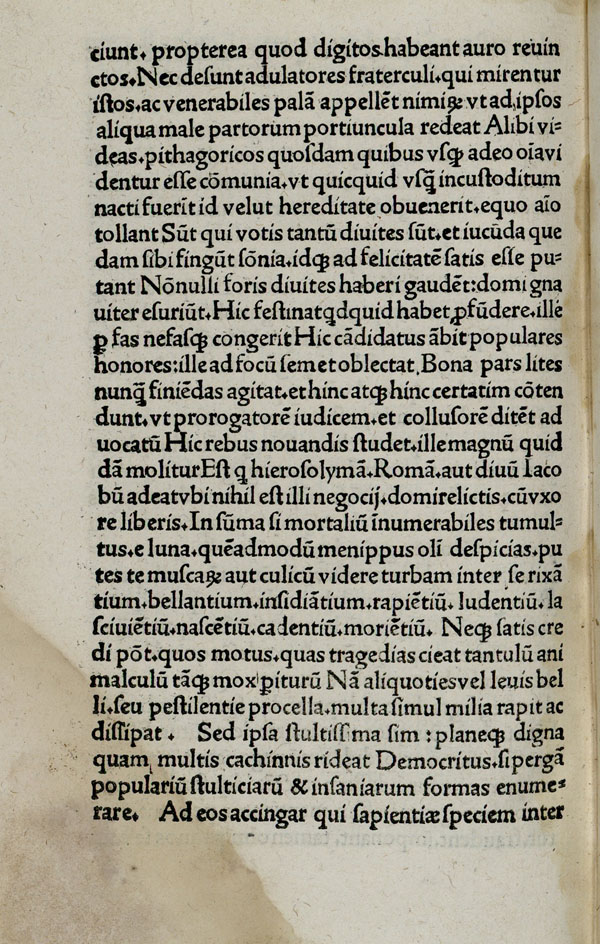 ciunt. propterea quod digitos habeant auro reuin
ctos. Nec desunt adulatores fraterculi. qui mirentur
istos. ac venerabiles palā appellēt nimiꝝ vt ad ipsos
aliqua male partorum portiuncula redeat Alibi vi⸗
deas. pithagoricos quosdam quibus vsqꝫ adeo oīa vi
dentur esse cōmunia. vt quicquid vsq̄ incustoditum
nacti fuerīt id velut hereditate obuenerit. equo aīo
tollant Sūt qui votis tantū diuites sūt. et iucūda que
dam sibi fingūt sōnia. idqꝫ ad felicitatē satis esse pu⸗
tant Nōnulli foris diuites haberi gaudēt: domi gna
uiter esuriūt. Hic festinat qdquid habet ꝓfūdere. ille
ꝑ fas nefasqꝫ congerit Hic cādidatus ābit populares
honores: ille ad focū semet oblectat. Bona pars lites
nunq̄ finiēdas agitat. et hinc atqꝫ hinc certatim cōten
dunt. vt prorogatorē iudicem. et collusorē ditēt ad
uocatū Hic rebus nouandis studet. ille magnū quid
dā molitur Est q hierosolymā. Romā. aut diuū Iaco
bū adeat vbi nihil est illi negocij. domi relictis. cū vxo
re liberis. In sūma si mortaliū īnumerabiles tumul⸗
tus. e luna. quēadmodū menippus oli despicias. pu
tes te muscaꝝ aut culicū videre turbam inter se rixā
tium. bellantium. insidiātium. rapiētiū. ludentiū. la
sciuiētiū. nascētiū. cadentiū. moriētiū. Neqꝫ satis cre
di pōt. quos motus. quas tragedias cieat tantulū ani
malculū tāqꝫ mox ꝑiturū Nā aliquoties vel leuis bel
li. seu pestilentie procella. multa simul milia rapit ac
dissipat. Sed ipsa stultissima sim: planeqꝫ digna
quam multis cachinnis rideat Democritus. si pergā
populariū stulticiarū & insaniarum formas enume⸗
rare. Ad eos accingar qui sapientiæ speciem inter